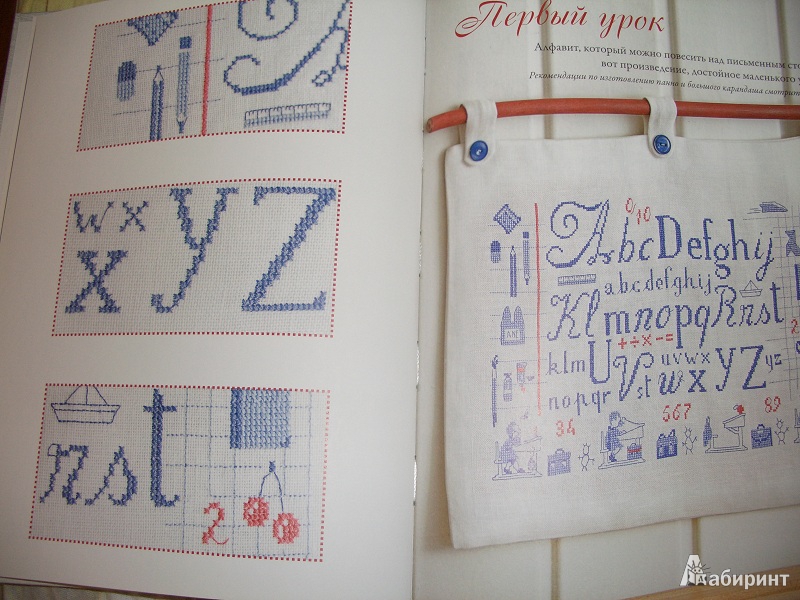 w x
x y Z
n s t
2
Первый урок
Алфавит, который можно повесить над письменным
вот произведение, достойное маленького
Рекомендации по изготовлению панно и большого карандаша
0/10
A b c D e f g h i j
a b c d e f g h i j
K l m n o p q R r s t
+ ÷ x - =
k l m U V u v w x y Z y z
n o p q r s t w x
3 4 5 6 7 8 9
Лабиринт